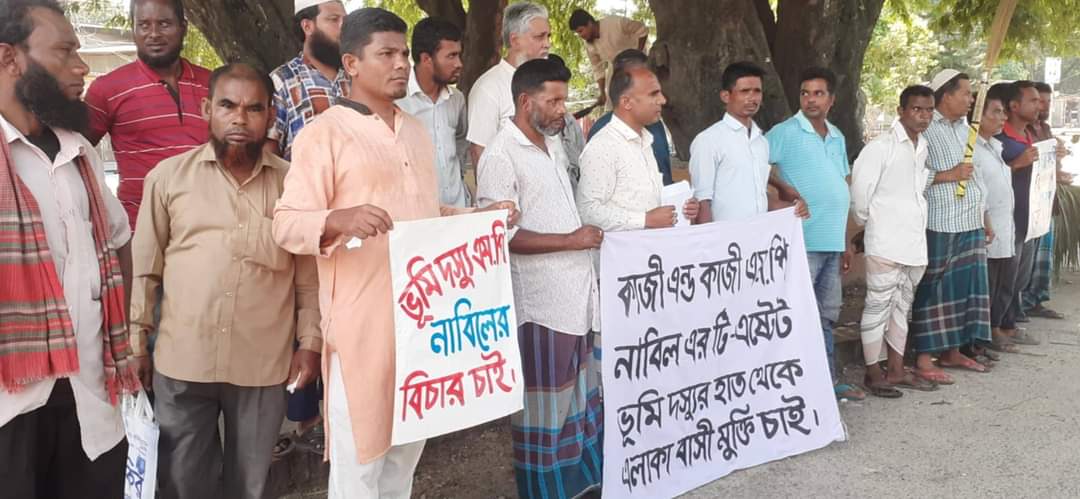 ভূমি দস্যু এম.পি
নাবিলের
বিচার চাই।
কাজী এন্ড কাজী এম.পি
নাবিল এর টি-এষ্টেট
ভূমি দস্যুর হাত থেকে
এলাকা বাসী মুক্তি চাই।